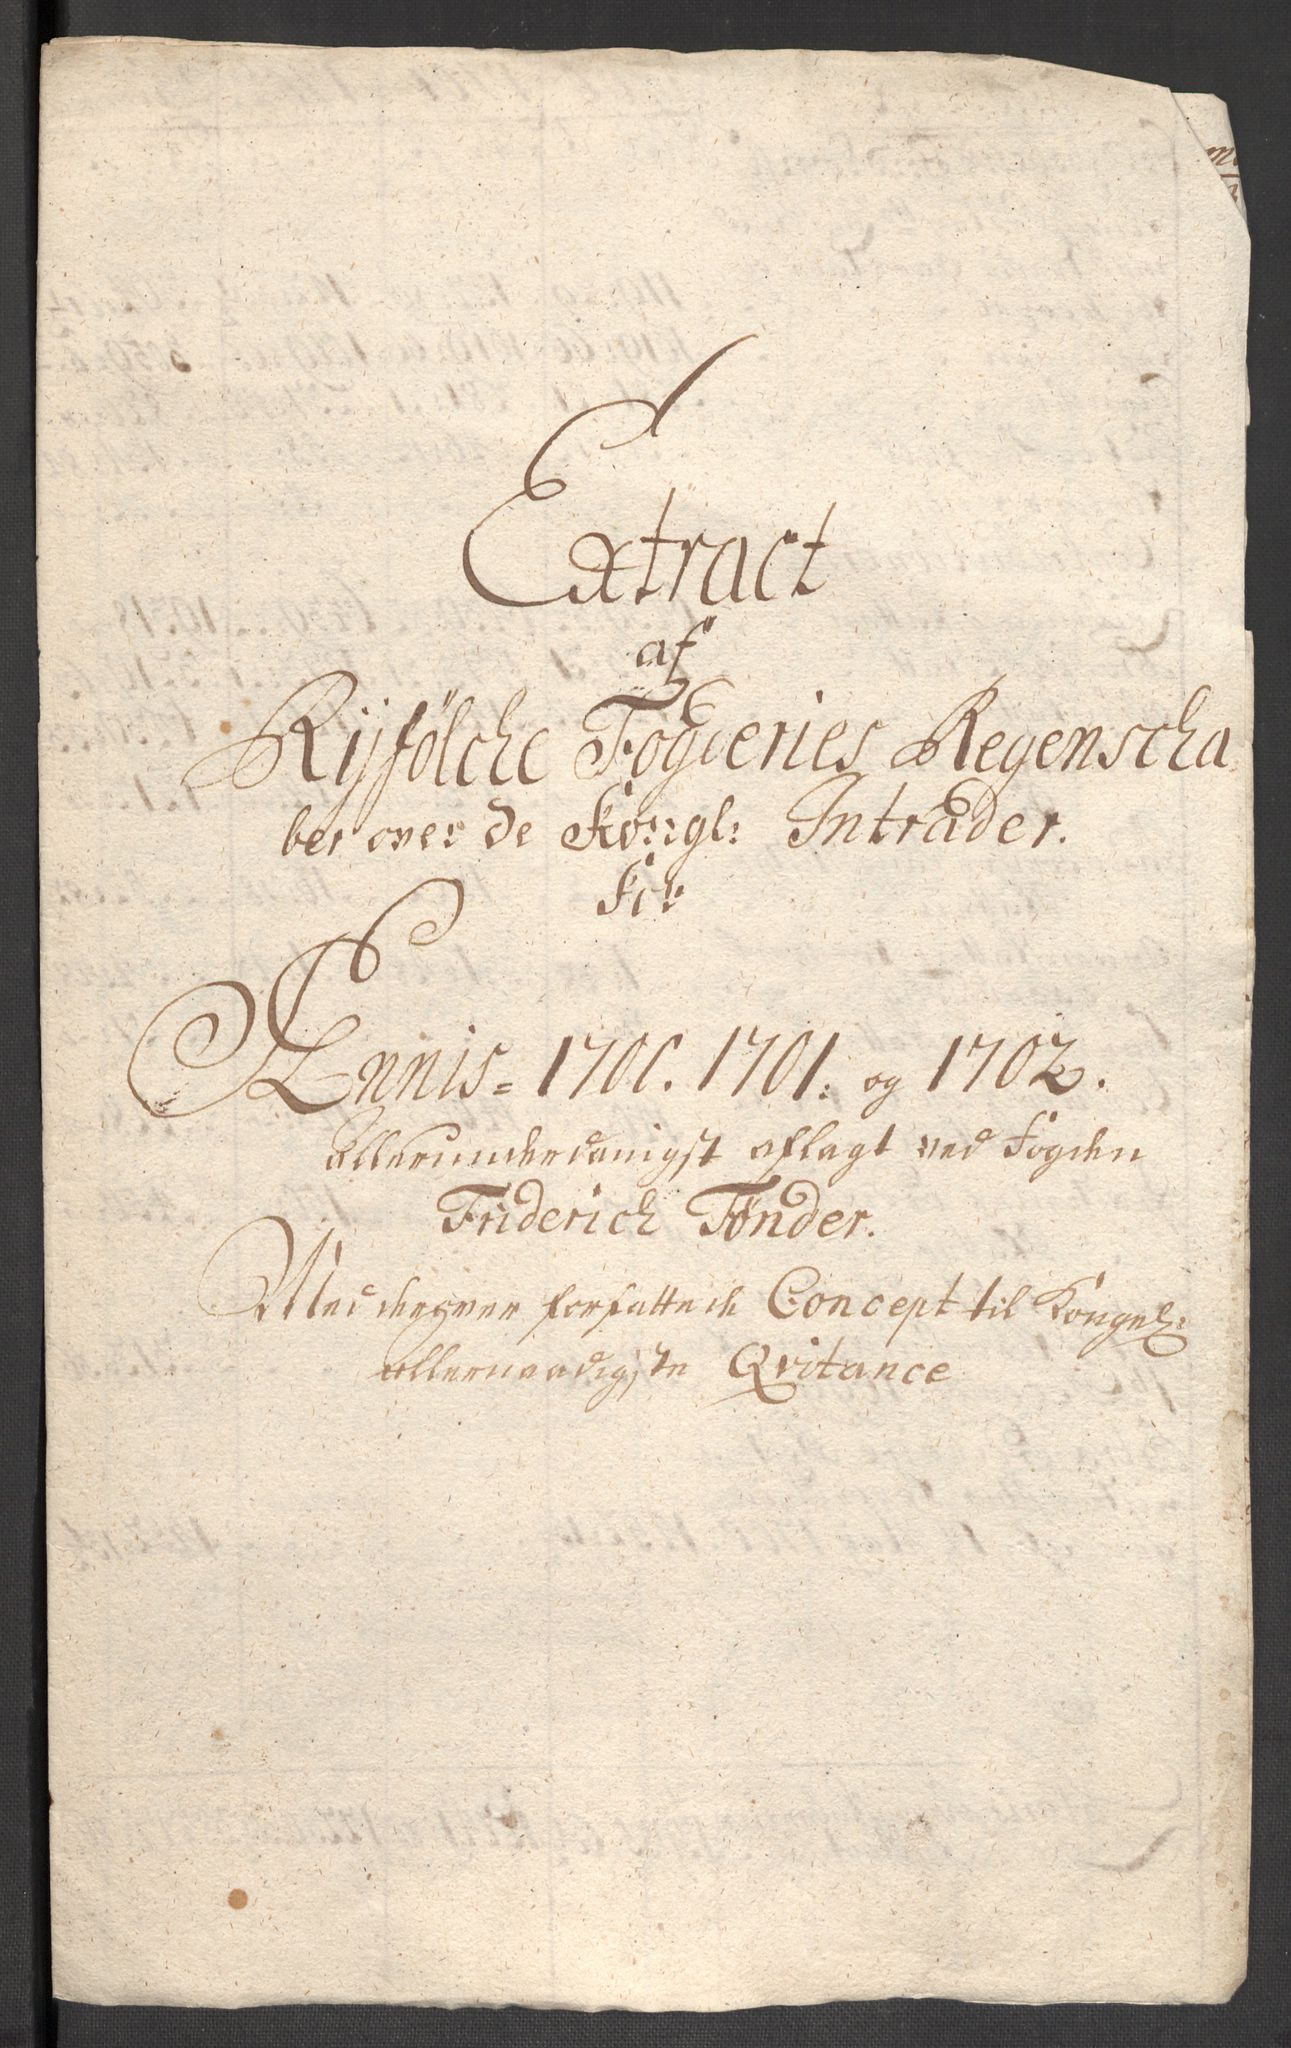 Extract
af
Ryfølche Fogderies Regenscha
ber over de Kongl: Intrader.
For
Annis= 1700. 1701. og 1702.
Allerunderdanigst aflagt ved Fogden
Friderich Tønder.
Med derover forfattede Concept til Kongel:
allernaadigste Qvitance